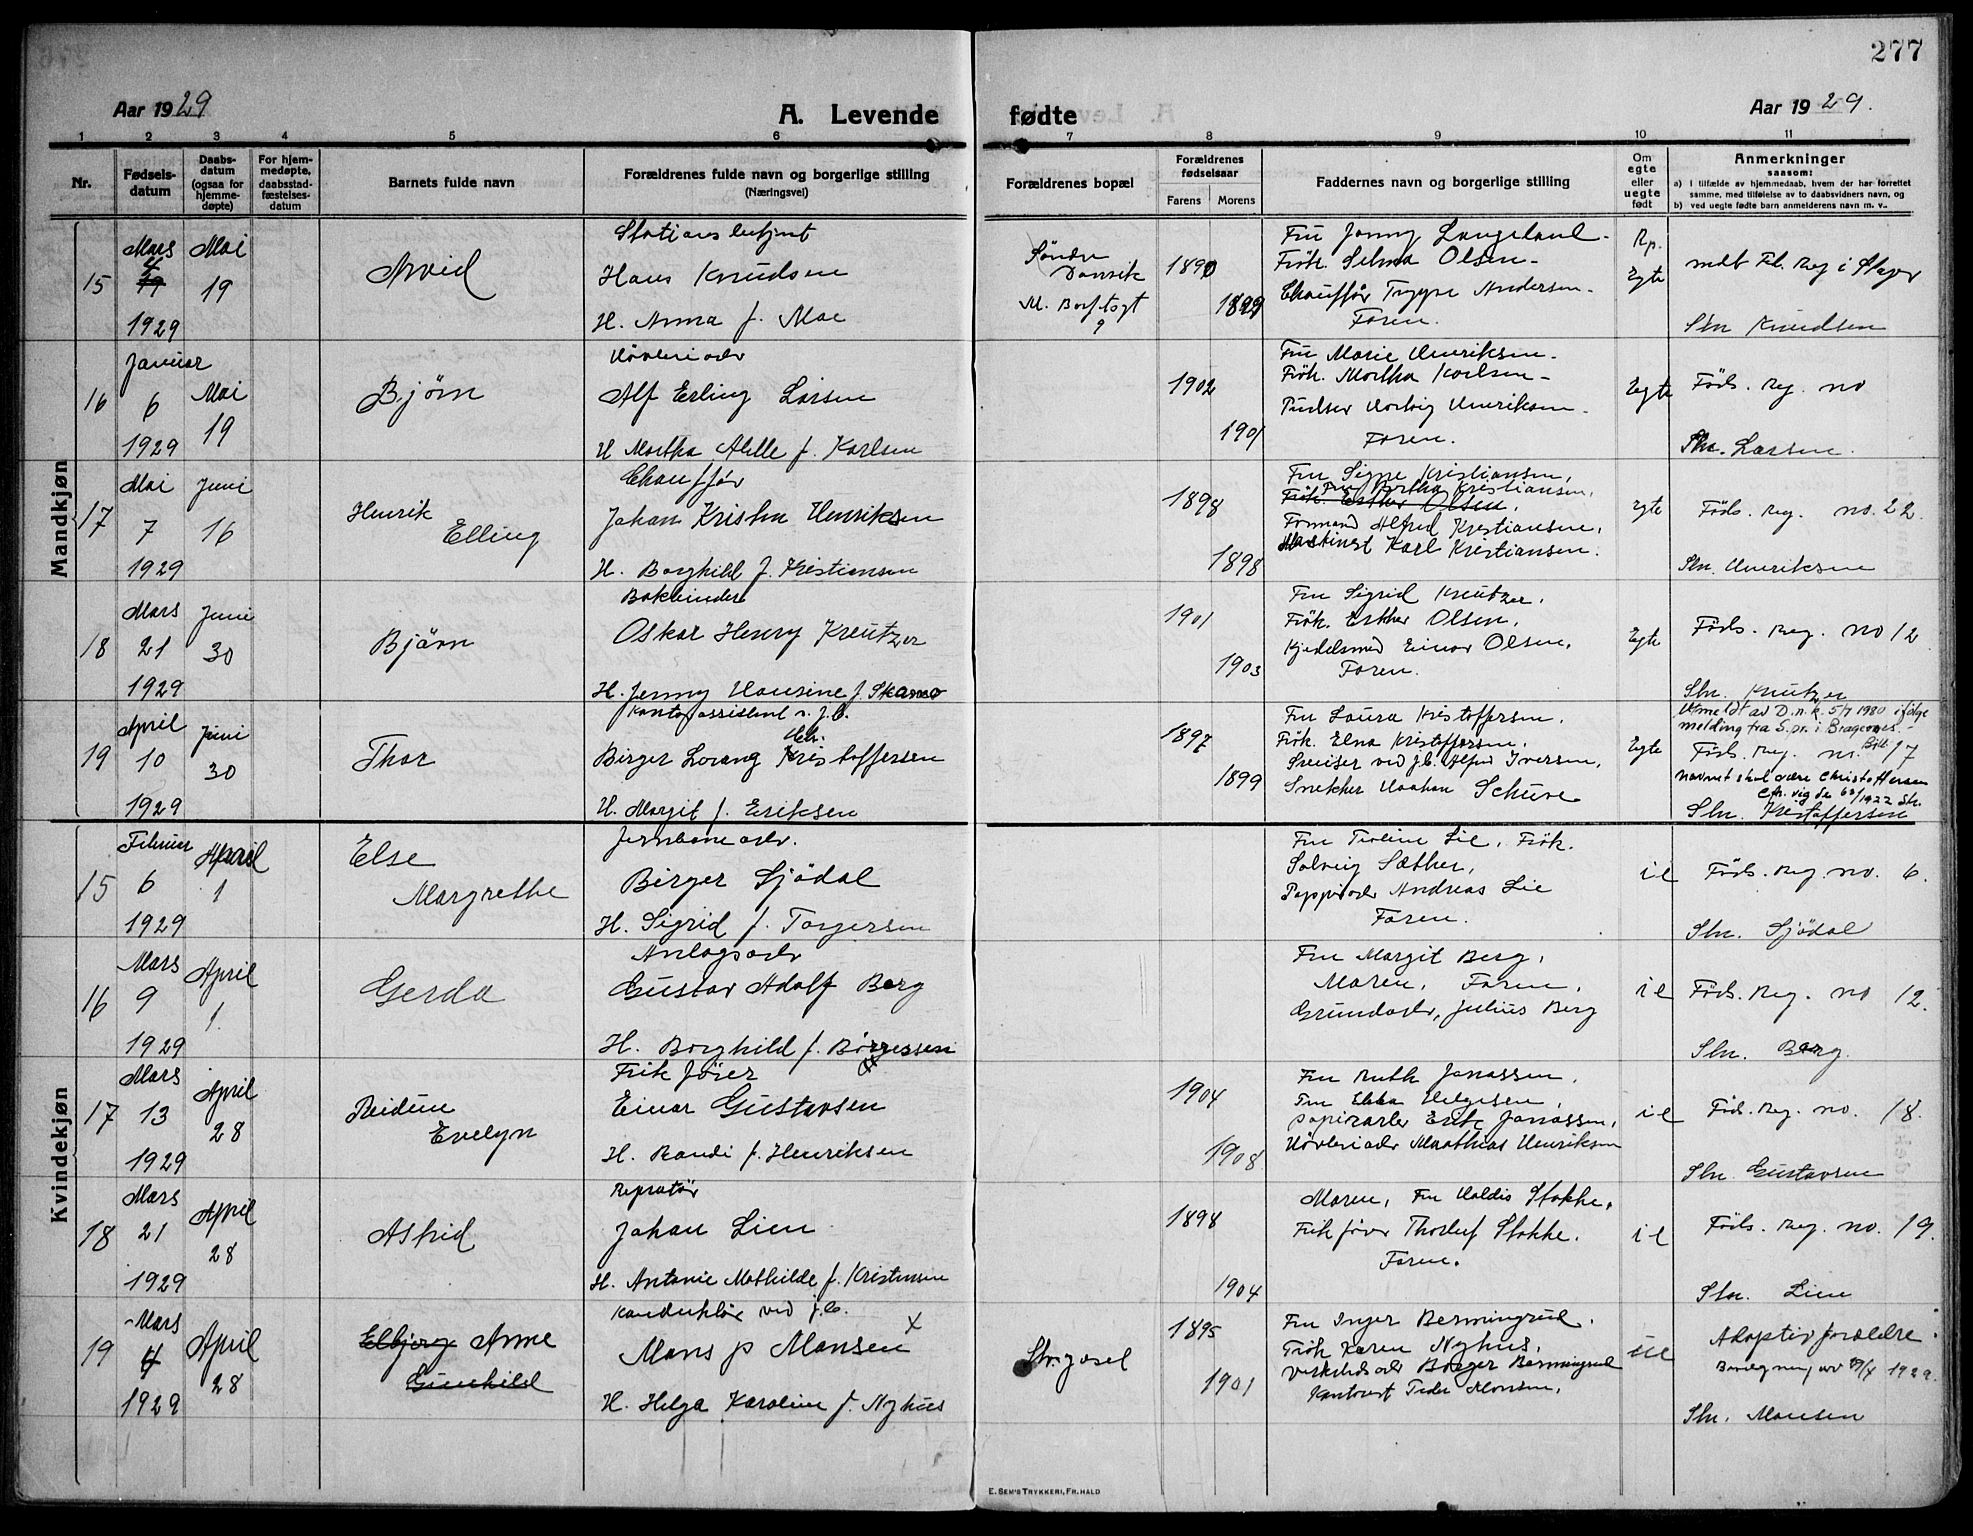 277
Aar 1929
A. Levende
fødte
Aar 1929.
1 2 3 4 5 6 7 8 9 10 11
Nr.
Fødsels-
datum
Daabs-
datum
(ogsaa for
hjemme-
døpte)
For hjem-
medøpte,
daabsstad-
fæstelses-
datum
Barnets fulde navn
Forældrenes fulde navn og borgerlige stilling
(Næringsvei)
Forældrenes bopæl
Forældrenes
fødselsaar
Farens Morens
Faddernes navn og borgerlige stilling
Om
egte
eller
uegte
født
Anmerkninger
saasom:
a) i tilfælde av hjemmedaab, hvem der har forrettet
samme, med tilføielse av to daabsvidners navn, og
b) ved uegte fødte barn anmelderens navn m. v..
Mandkjøn
15
Mars
4
1929
Mai
19
Arvid
Stationsbetjent
Hans Knudsen
H. Anna f. Moe
Søndre
Dansvik
1890
1899
Fru Jenny Langeland -
Frök. Selma Olsen -
Chauffør Trygve Andersen -
Faren.
Egte
Stn Knudsen
16
Januar
6
1929
Mai
19
Bjørn
Høvleriarb
Alf Erling Larsen
H Martha Alille f. Karlsen
1902
1901
Fru Marie Henriksen -
Frök. Martha Karlsen -
Pudser Hartvig Henriksen -
Faren.
Egte
Føds. Reg. no
Stn. Larsen.
17
Mai
7
1929
Juni
16
Henrik
Elling
Chauffør
Johan Kristen Henriksen
H. Borghild f. Kristiansen
1898
1898
Fru Signe Kristiansen,
Fru Bertha Kristiansen,
Frök. Esther Olsen,
Formand Alfred Kristiansen,
Maskinist Karl Kristiansen.
Egte
Føds. Reg. no. 22.
Stn. Henriksen
18
Mars
21
1929
Juni
30
Bjørn
Bokbinder
Oskar Henry Kreutzer
H. Jenny Hansine f. Skamo
1901
1903
Fru Sigrid Kreutzer,
Frök. Esther Olsen,
Kjedelsmed Einar Olsen,
Faren.
Egte
Føds. Reg. no 12
Stn. Kreutzer
19
April
10
1929
Juni
30
Thor
Kontorassistent v. J.b.
Ch.
Birger Lorang Kristoffersen
H. Margit f. Eriksen
1897
1899
Fru Laura Kristoffersen,
Frök. Elna Kristoffersen,
Smeiser ved J.b. Alfred Iversen,
Snekker Haakon Schuve
Egte
Utmeldt av D.n.k. 5/7 1980 ifølge
melding fra S.pr. i Bragernes. -
Føds. Reg. no. 17
Navnet skal være Christoffersen
Stn. Kristoffersen
Kvindekjøn
15
Februar
6
1929
April
1
Else
Margrethe
Jernbanearb.
Birger Sjödal
H. Sigrid f. Torgersen
Fru Tealine Lie, Frök.
Solveig Sæther,
Andreas Lie
Faren.
il
Føds. Reg. no. 6.
Stn. Sjödal
16
Mars
9
1929
April
1.
Gerda
Anlagsarb
Gustav Adolf Berg
H. Borghild f. Börgessen
Fru Margit Berg,
Moren, Faren,
Grundarb, Julius Berg
il
Føds. Reg. no 12.
Stn. Berg.
17
Mars
13
1929
April
28
Reidun
Evelyn
Frik jører
Einar Gustavsen
H. Randi f. Henriksen
1904
1908
Fru Ruth Jonassen,
Fru Ebba Helgesen,
Papirarb Erik Jonassen,
Høvleriarb Maathias Henriksen
il
Føds. Reg. no. 18.
Stn. Gustavsen
18
Mars
21
1929
April
28
Astrid
Repratör
Johan Lien
H. Antonie Mathilde f. Kristensen
1898
1904
Moren, Fru Valdis Stokke,
Frik jører Thorleif Stokke.
Faren.
il
Føds. Reg. no. 19.
Stn. Lien
19
Mars
4
1929
April
28
Elbjørg Anne
Gunhild
Konduktør ved J.b.
Mons P Monsen x
H. Helga Karoline f. Nyhus
1895
1901
Fru Inger Bermingrud,
Frök Karen Nyhus,
Birger Bermingrud
Kontorist Peder Monsen.
Adoptivforældre.
1929.
Stn. Monsen
E. SEM'S TRYKKERI, FR.HALD